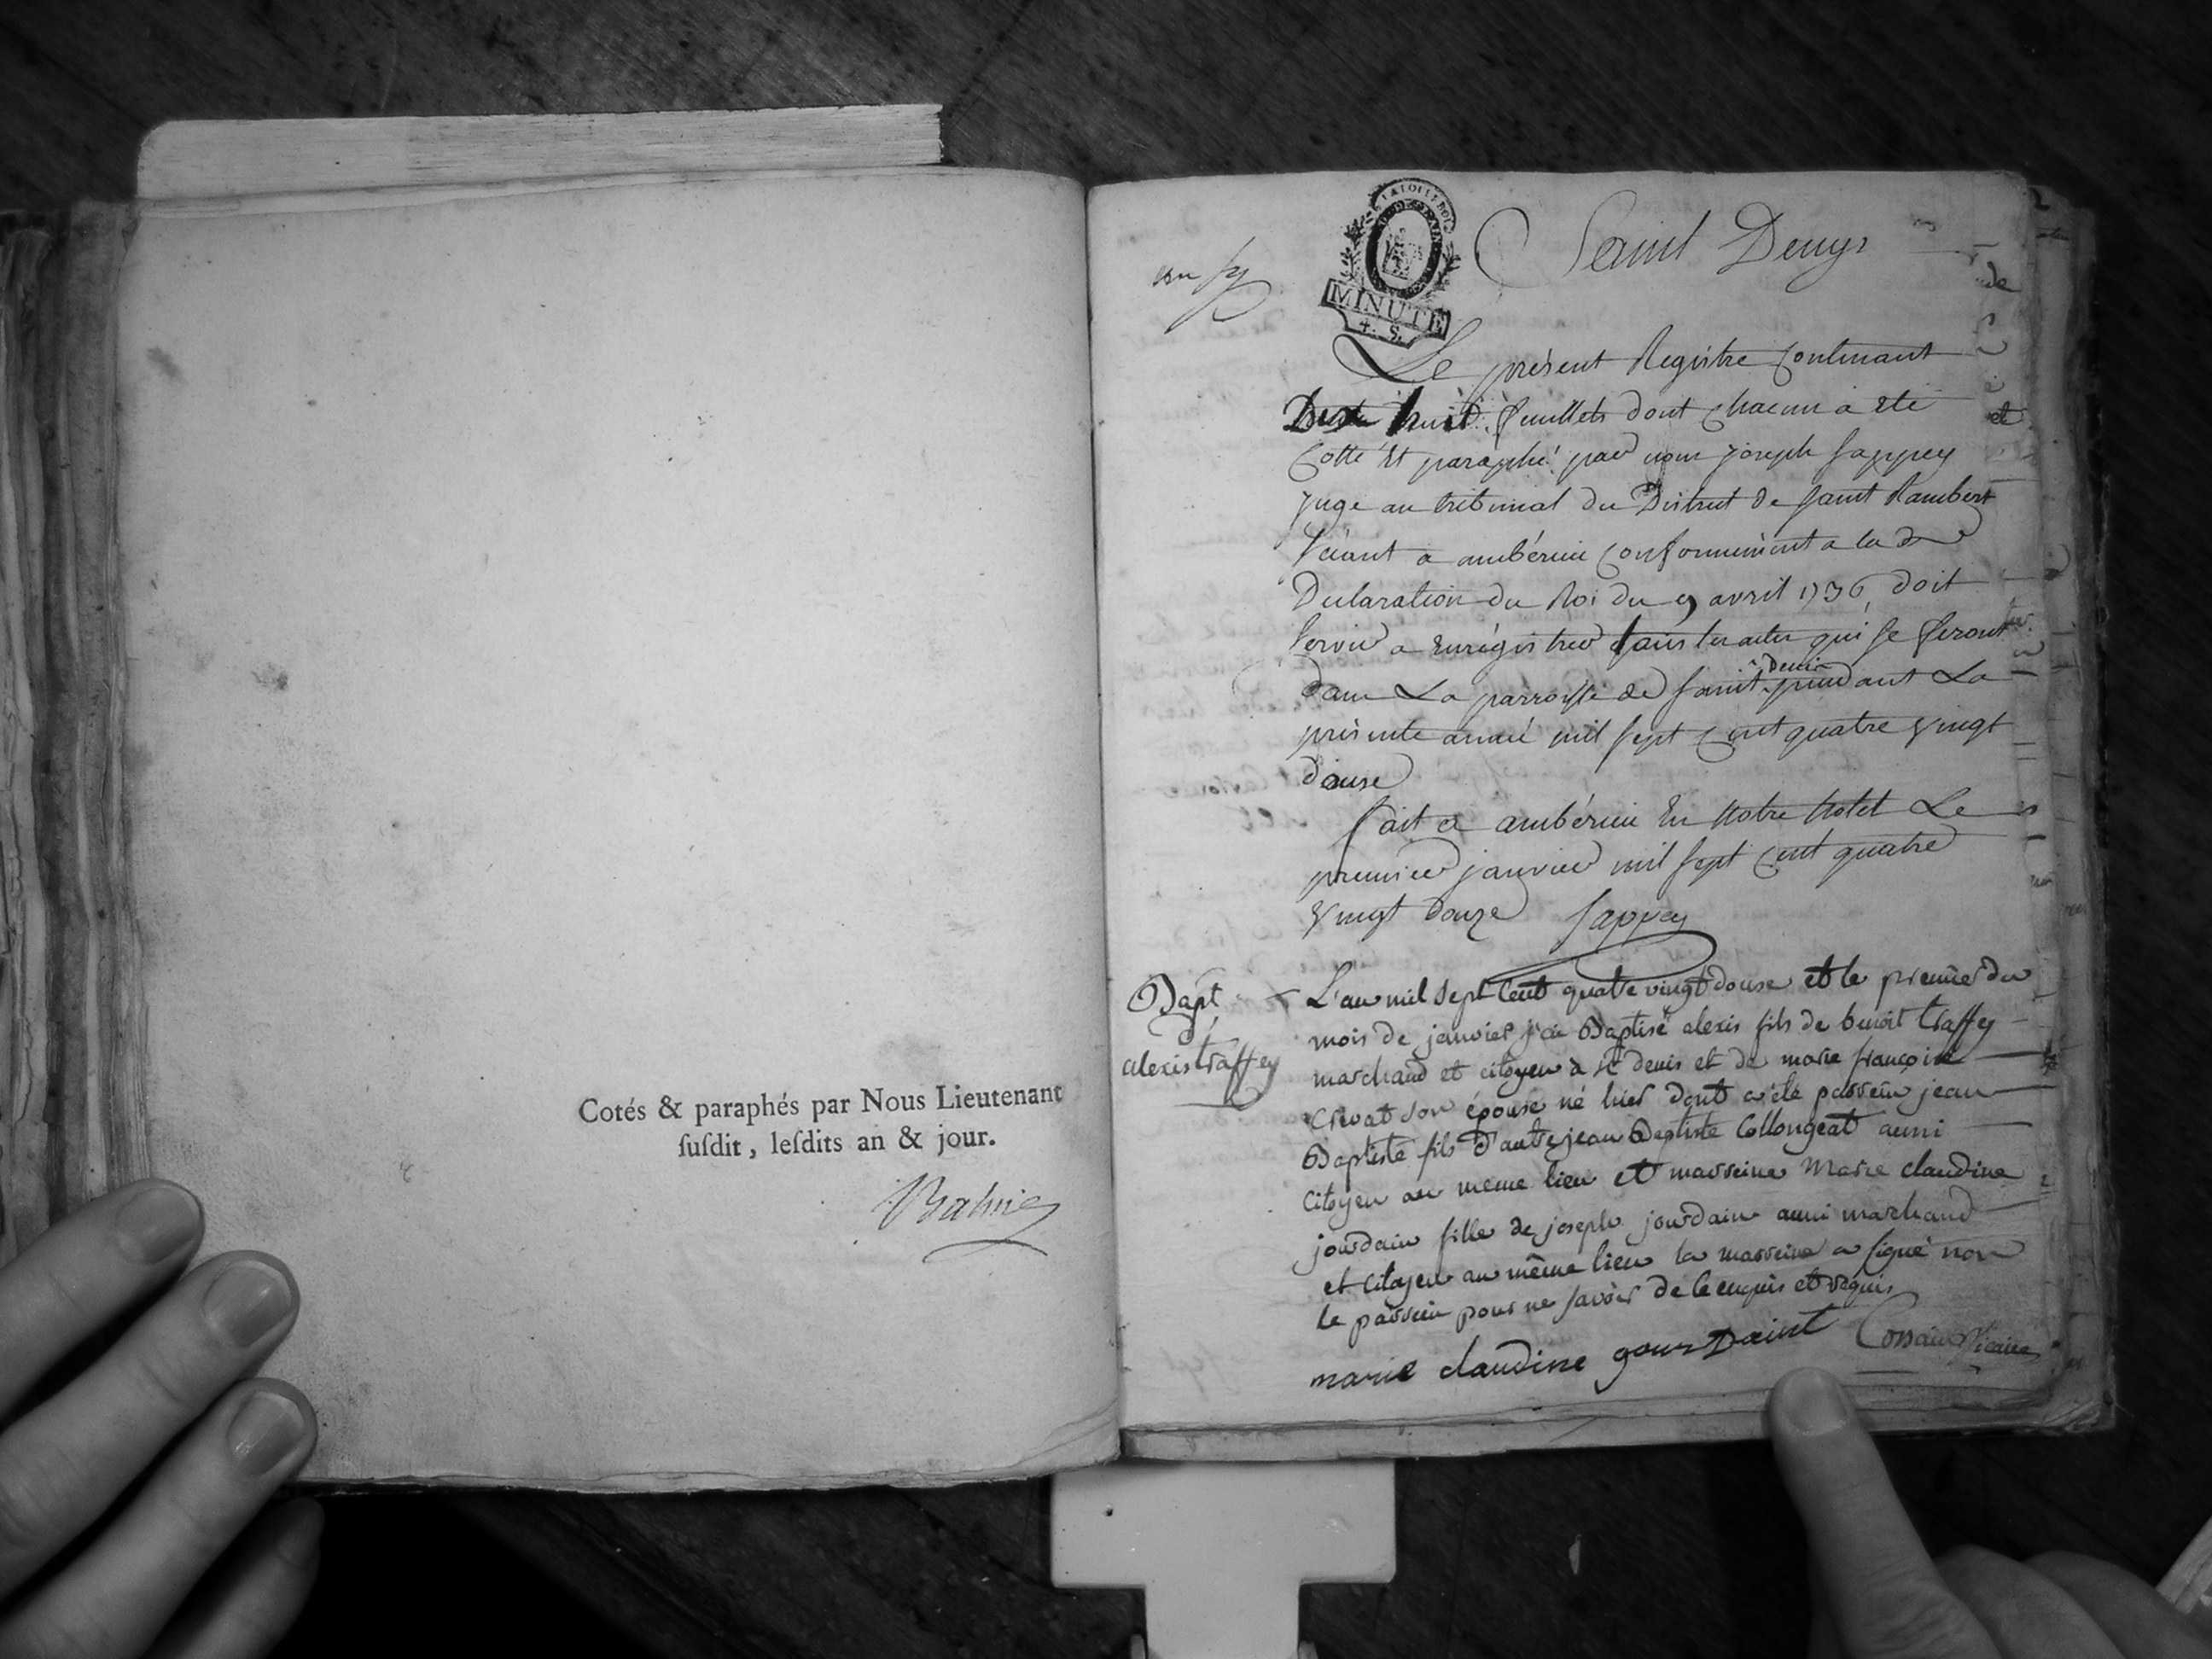 Cotés & paraphés par Nous Lieutenant
ſuſdit, leſdits an & jour.
Balme
un
LA LOI ET LE ROI
MINUTE
4. S.
Saint Denys
Le présent Registre Contenant
huit feuillets dont Chacun a été
Cotté Et paraphé par nous joseph Sappey
juge au tribunal du District de saint Rambert
séant a ambérieu Conformément a la
Declaration du Roi du 9 avril 1736, doit
servir a Enrégistrer tous les actes qui se feront
dans La parroisse de saint Denis pendant La
présente année mil sept Cent quatre vingt
douse
fait a ambérieu En Notre hotel Le
premier janvier mil sept Cent quatre
vingt douze Sappey
Bapt
d'
alexis traffey
L'an mil sept cent quatre vingt douse et le premier du
mois de janvier j'ai Baptisé alexis fils de benoit traffey
marchand et citoyen à st denis et de marie françoise
Crevat son épouse né hier dont a été parrein jean
Baptiste fils d'autre jean Baptiste Collongeat aussi
Citoyen au meme lieu et marreine Marie claudine
jourdain fille de joseph jourdain aussi marchand
et citoyen au même lieu la marreine a signé non
le parrein pour ne savoir de ce enquis et requis
marie claudine gourdaint Vicaire